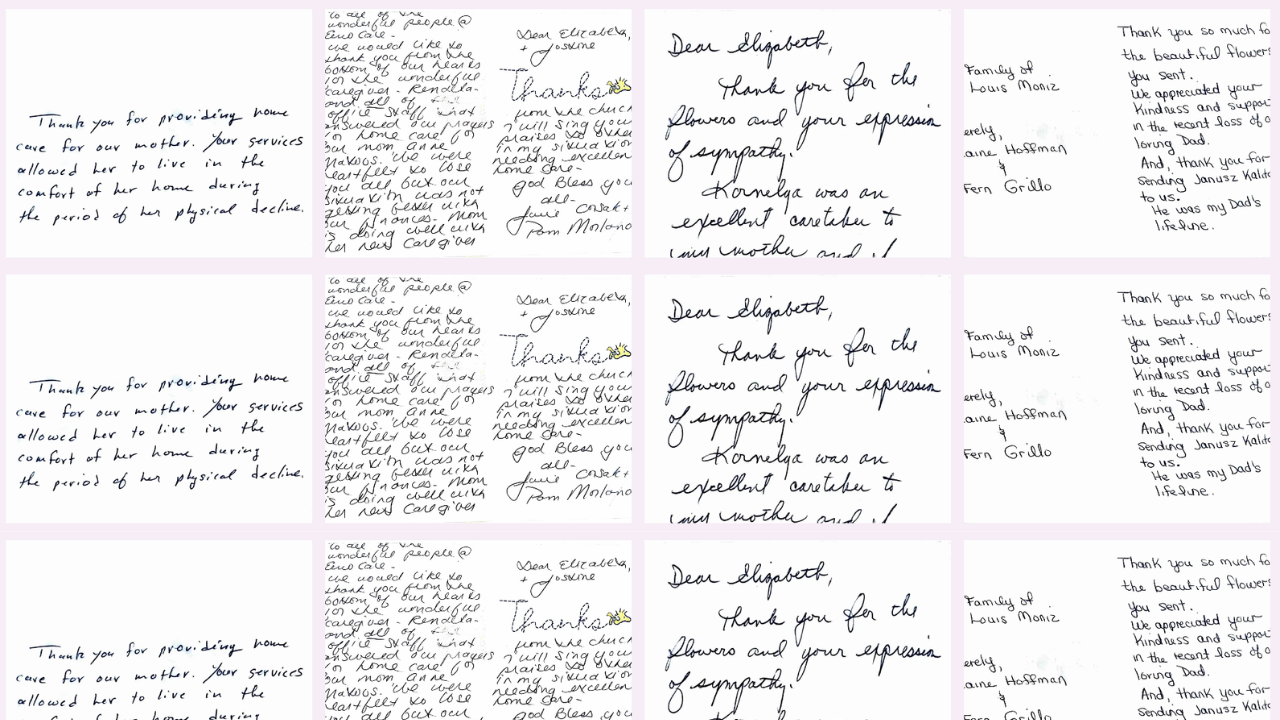 Thank you for providing home
care for our mother. Your services
allowed her to live in the
comfort of her home during
the period of her physical decline.
to all of the
wonderful people @
we would like to
thank you from the
bottom of our hearts
for the wonderful
caregiver - Rendela-
and all of
office staff that
answered our prayers
in home care for
our mom Anne
We were
heartfelt to lose
you all but our
situation was not
getting better with
our finances. Mom
is doing well with
her new caregiver
Dear Elizabeth,
+
Thanks
from the church
I will sing your
praises to other
in my situation
needing excellen
home care-
God Bless you
all-
Dear Elizabeth,
Thank you for the
flowers and your expression
of sympathy.
Kornelya was an
excellent caretaker to
my mother and if
Family of
Louis Moniz
erely,
aine Hoffman
&
Fern Grillo
Thank you so much fo
the beautiful flowers
you sent.
We appreciated your
Kindness and suppor
in the recent loss of o
loving Dad.
And, thank you for
sending Janusz Kalit
to us.
He was my Dad's
lifeline.
Thank you for providing home
care for our mother. Your services
allowed her to live in the
comfort of her home during
the period of her physical decline.
to all of the
wonderful people @
we would like to
thank you from the
bottom of our hearts
for the wonderful
caregiver - Rendela-
and all of
office staff that
answered our prayers
in home care for
our mom Anne
We were
heartfelt to lose
you all but our
situation was not
getting better with
our finances. Mom
is doing well with
her new caregiver
Dear Elizabeth,
+
Thanks
from the church
I will sing your
praises to other
in my situation
needing excellen
home care-
God Bless you
all-
Dear Elizabeth,
Thank you for the
flowers and your expression
of sympathy.
Kornelya was an
excellent caretaker to
my mother and if
Family of
Louis Moniz
erely,
aine Hoffman
&
Fern Grillo
Thank you so much fo
the beautiful flowers
you sent.
We appreciated your
Kindness and suppor
in the recent loss of o
loving Dad.
And, thank you for
sending Janusz Kalit
to us.
He was my Dad's
lifeline.
Thank you for providing home
care for our mother. Your services
allowed her to live in the
comfort of her home during
to all of the
wonderful people @
we would like to
thank you from the
bottom of our hearts
for the wonderful
caregiver - Rendela-
and all of
office staff that
answered our prayers
in home care for
our mom Anne
We were
heartfelt to lose
you all but our
Dear Elizabeth,
+
Thanks
from the church
I will sing your
praises to other
in my situation
needing excellen
home care-
God Bless you
Dear Elizabeth,
Thank you for the
flowers and your expression
of sympathy.
Kornelya was an
Family of
Louis Moniz
erely,
aine Hoffman
&
Fern Grillo
Thank you so much fo
the beautiful flowers
you sent.
We appreciated your
Kindness and suppor
in the recent loss of o
loving Dad.
And, thank you for
sending Janusz Kalit